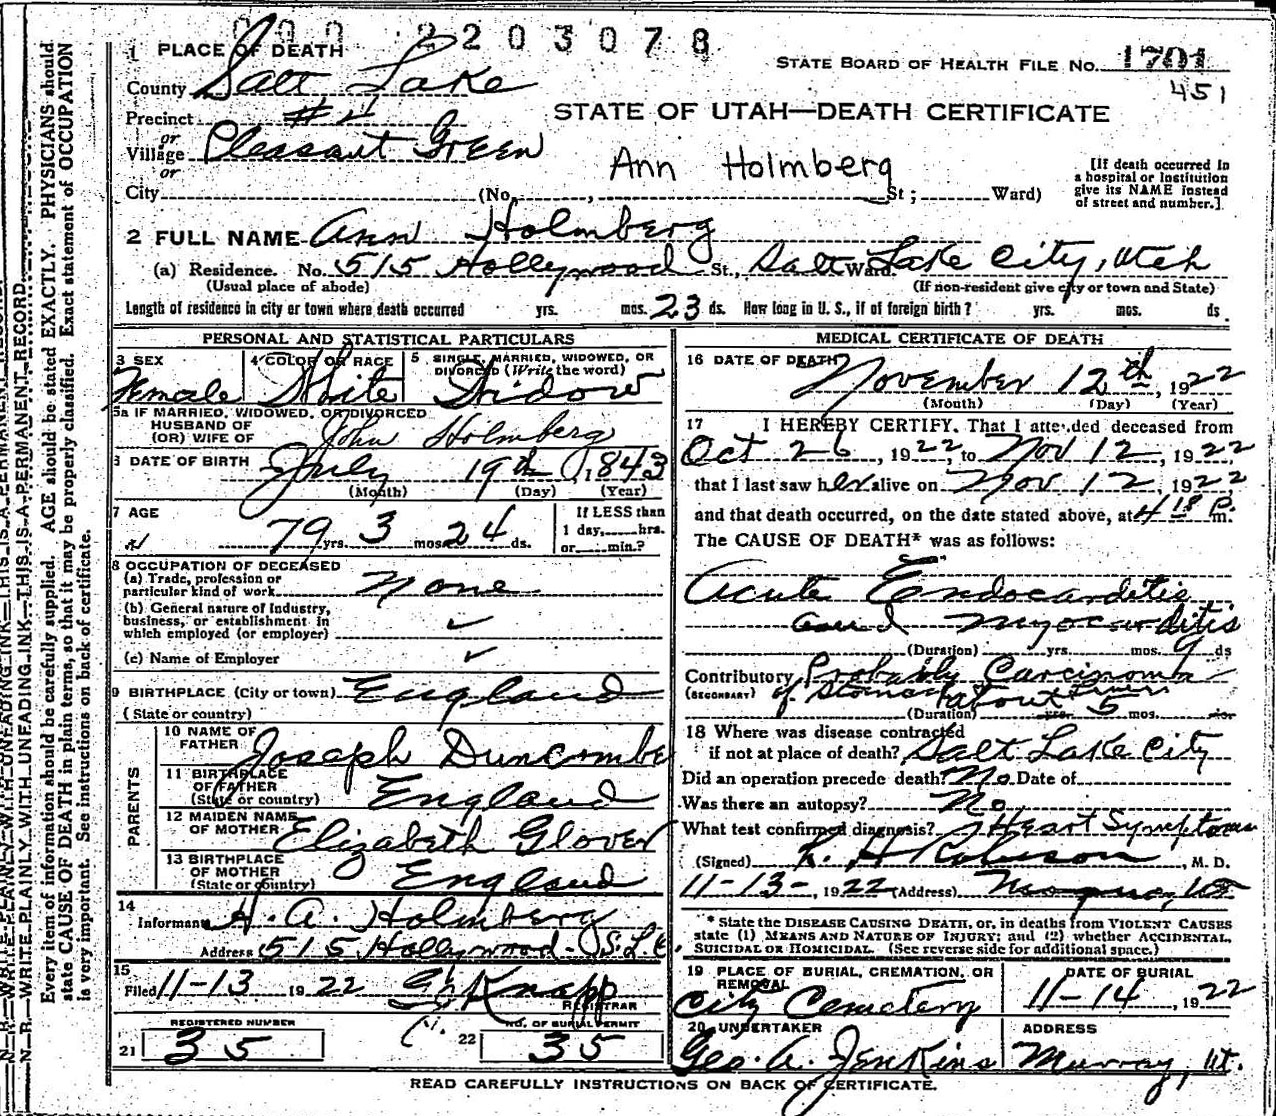 000 2203078
1 PLACE OF DEATH
STATE BOARD OF HEALTH FILE No. 1701
451
County Salt Lake
Precinct #4
STATE OF UTAH—DEATH CERTIFICATE
or
Village Pleasant Green
or
Ann Holmberg
City (No. , St; Ward)
[If death occurred in
a hospital or institution
give its NAME instead
of street and number.]
2 FULL NAME Ann Holmberg
(a) Residence. No. 515 Hollywood St., Ward. Salt Lake City, Utah
(Usual place of abode) (If non-resident give city or town and State)
Length of residence in city or town where death occurred yrs. mos. 23 ds. How long in U. S., if of foreign birth? yrs. mos. ds.
PERSONAL AND STATISTICAL PARTICULARS
3 SEX
Female
4 COLOR OR RACE
White
5 SINGLE, MARRIED, WIDOWED, OR
DIVORCED (Write the word)
Widow
5a IF MARRIED, WIDOWED, OR DIVORCED
HUSBAND OF
(OR) WIFE OF John Holmberg
6 DATE OF BIRTH July 19th, 1843
(Month) (Day) (Year)
7 AGE
79 yrs. 3 mos. 24 ds.
If LESS than
1 day, hrs.
or min.?
8 OCCUPATION OF DECEASED
(a) Trade, profession or
particular kind of work None
(b) General nature of Industry,
business, or establishment in
which employed (or employer) ✓
(c) Name of Employer ✓
9 BIRTHPLACE (City or town) England
(State or country)
PARENTS
10 NAME OF
FATHER Joseph Duncombe
11 BIRTHPLACE
OF FATHER
(State or country) England
12 MAIDEN NAME
OF MOTHER Elizabeth Glover
13 BIRTHPLACE
OF MOTHER
(State or country) England
14
Informant H. A. Holmberg
Address 515 Hollywood - S.L.C.
15
Filed 11-13 1922 Knapp
REGISTRAR
REGISTERED NUMBER
21 35
NO. OF BURIAL PERMIT
22 35
MEDICAL CERTIFICATE OF DEATH
16 DATE OF DEATH
November 12th, 1922
(Month) (Day) (Year)
17 I HEREBY CERTIFY, That I attended deceased from
Oct 26, 1922, to Nov 12, 1922,
that I last saw her alive on Nov 12, 1922
and that death occurred, on the date stated above, at 4 18 P. m.
The CAUSE OF DEATH* was as follows:
Acute Endocarditis
and Myocarditis
(Duration) yrs. mos. 9 ds
Contributory Probably Carcinoma
(SECONDARY) of Stomach
(Duration) about yrs. 5 mos. ds.
18 Where was disease contracted
if not at place of death? Salt Lake City
Did an operation precede death? No Date of
Was there an autopsy? No
What test confirmed diagnosis? Heart Symptoms
(Signed) , M. D.
11-13-, 1922 (Address)
* State the DISEASE CAUSING DEATH, or, in deaths from VIOLENT CAUSES
state (1) MEANS AND NATURE OF INJURY; and (2) whether ACCIDENTAL,
SUICIDAL OR HOMICIDAL. (See reverse side for additional space.)
19 PLACE OF BURIAL, CREMATION, OR
REMOVAL
City Cemetery
DATE OF BURIAL
11-14, 1922
20 UNDERTAKER
Geo. A. Jenkins
ADDRESS
Murray, Ut.
READ CAREFULLY INSTRUCTIONS ON BACK OF CERTIFICATE.
N. B.—WRITE PLAINLY WITH UNFADING INK—THIS IS A PERMANENT RECORD.
Every item of information should be carefully supplied. AGE should be stated EXACTLY. PHYSICIANS should
state CAUSE OF DEATH in plain terms, so that it may be properly classified. Exact statement of OCCUPATION
is very important. See instructions on back of certificate.